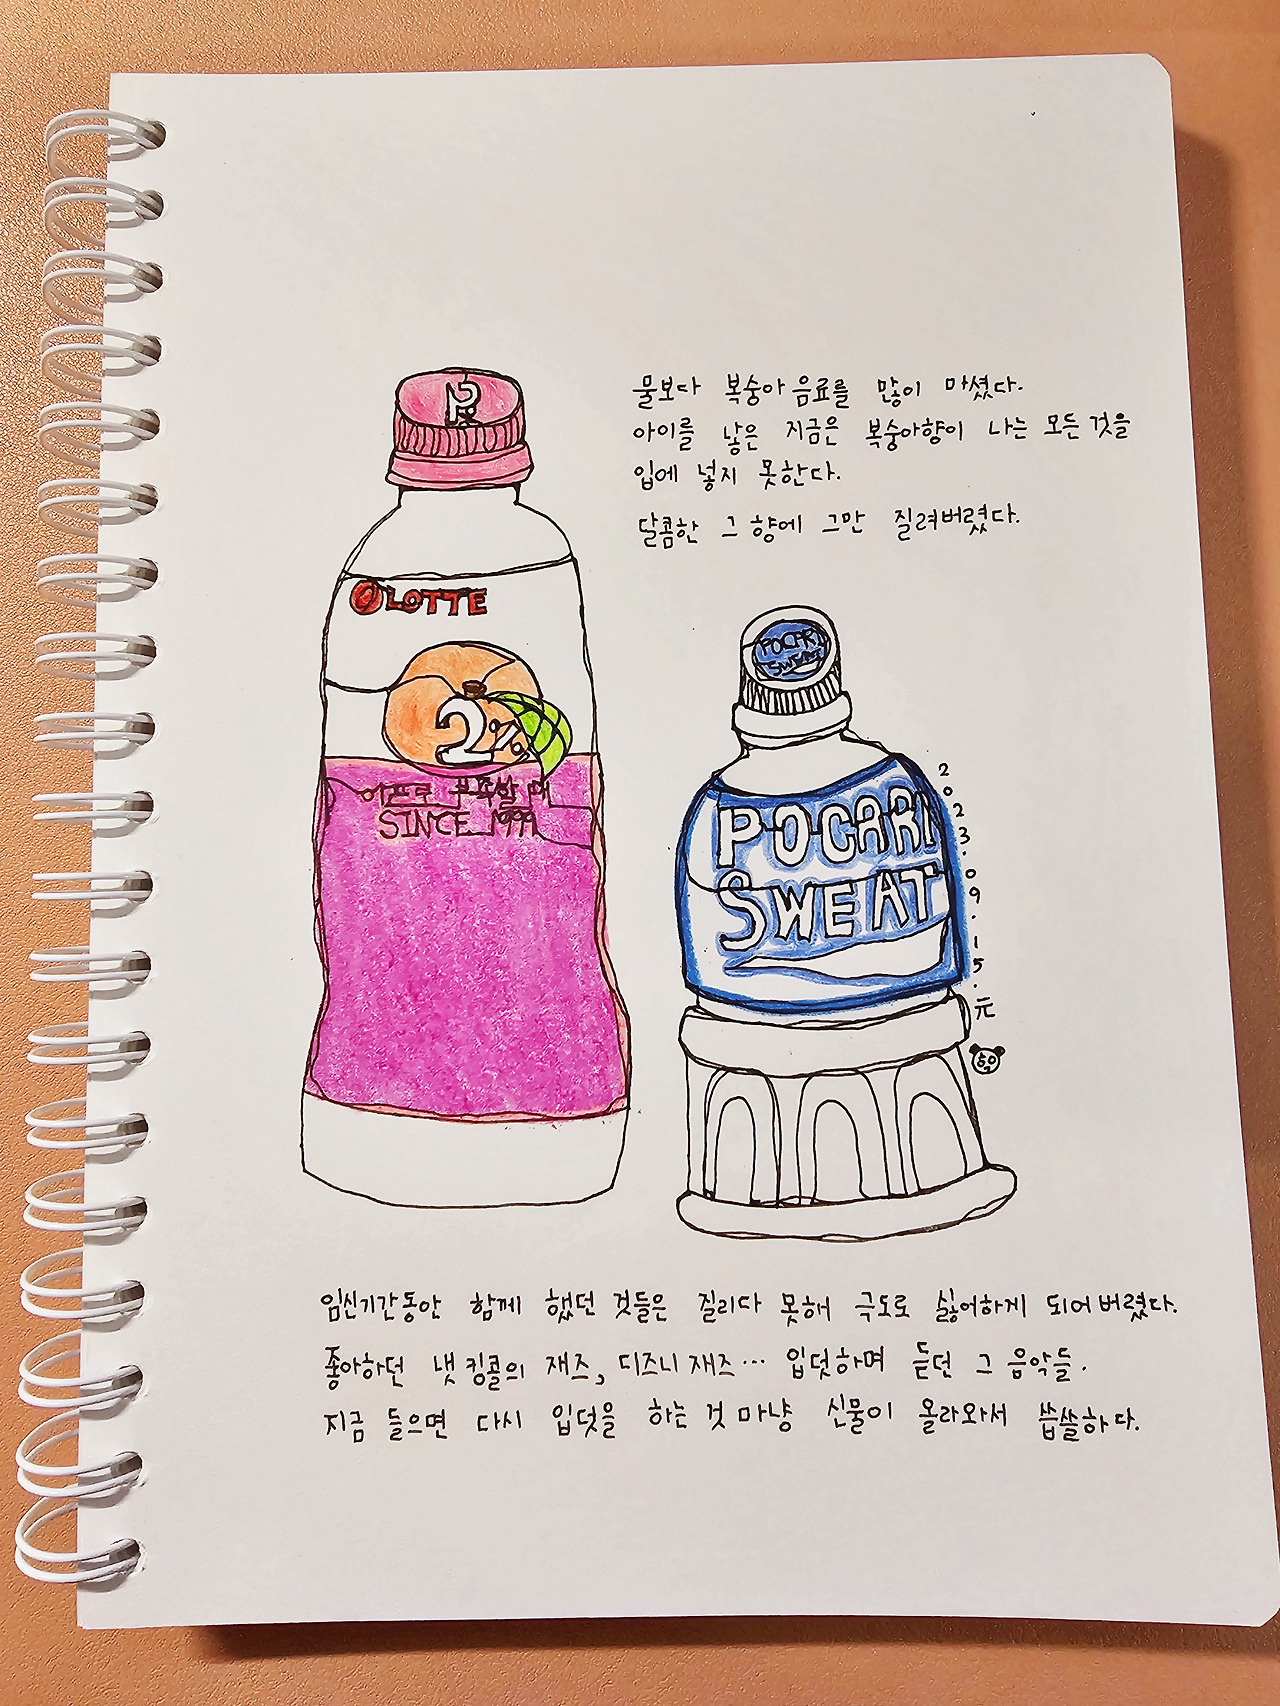 물보다 복숭아 음료를 많이 마셨다.
아이를 낳은 지금은 복숭아향이 나는 모든 것을
입에 넣지 못한다.
달콤한 그 향에 그만 질려버렸다.
2%
LOTTE
2%
부족할 때
SINCE 1999
POCARI
SWEAT
POCARI
SWEAT
2023.09.15.元
임신기간동안 함께 했던 것들은 질리다 못해 극도로 싫어하게 되어버렸다.
좋아하던 냇킹콜의 재즈, 디즈니 재즈… 입덧하며 듣던 그 음악들.
지금 들으면 다시 입덧을 하는 것 마냥 신물이 올라와서 씁쓸하다.